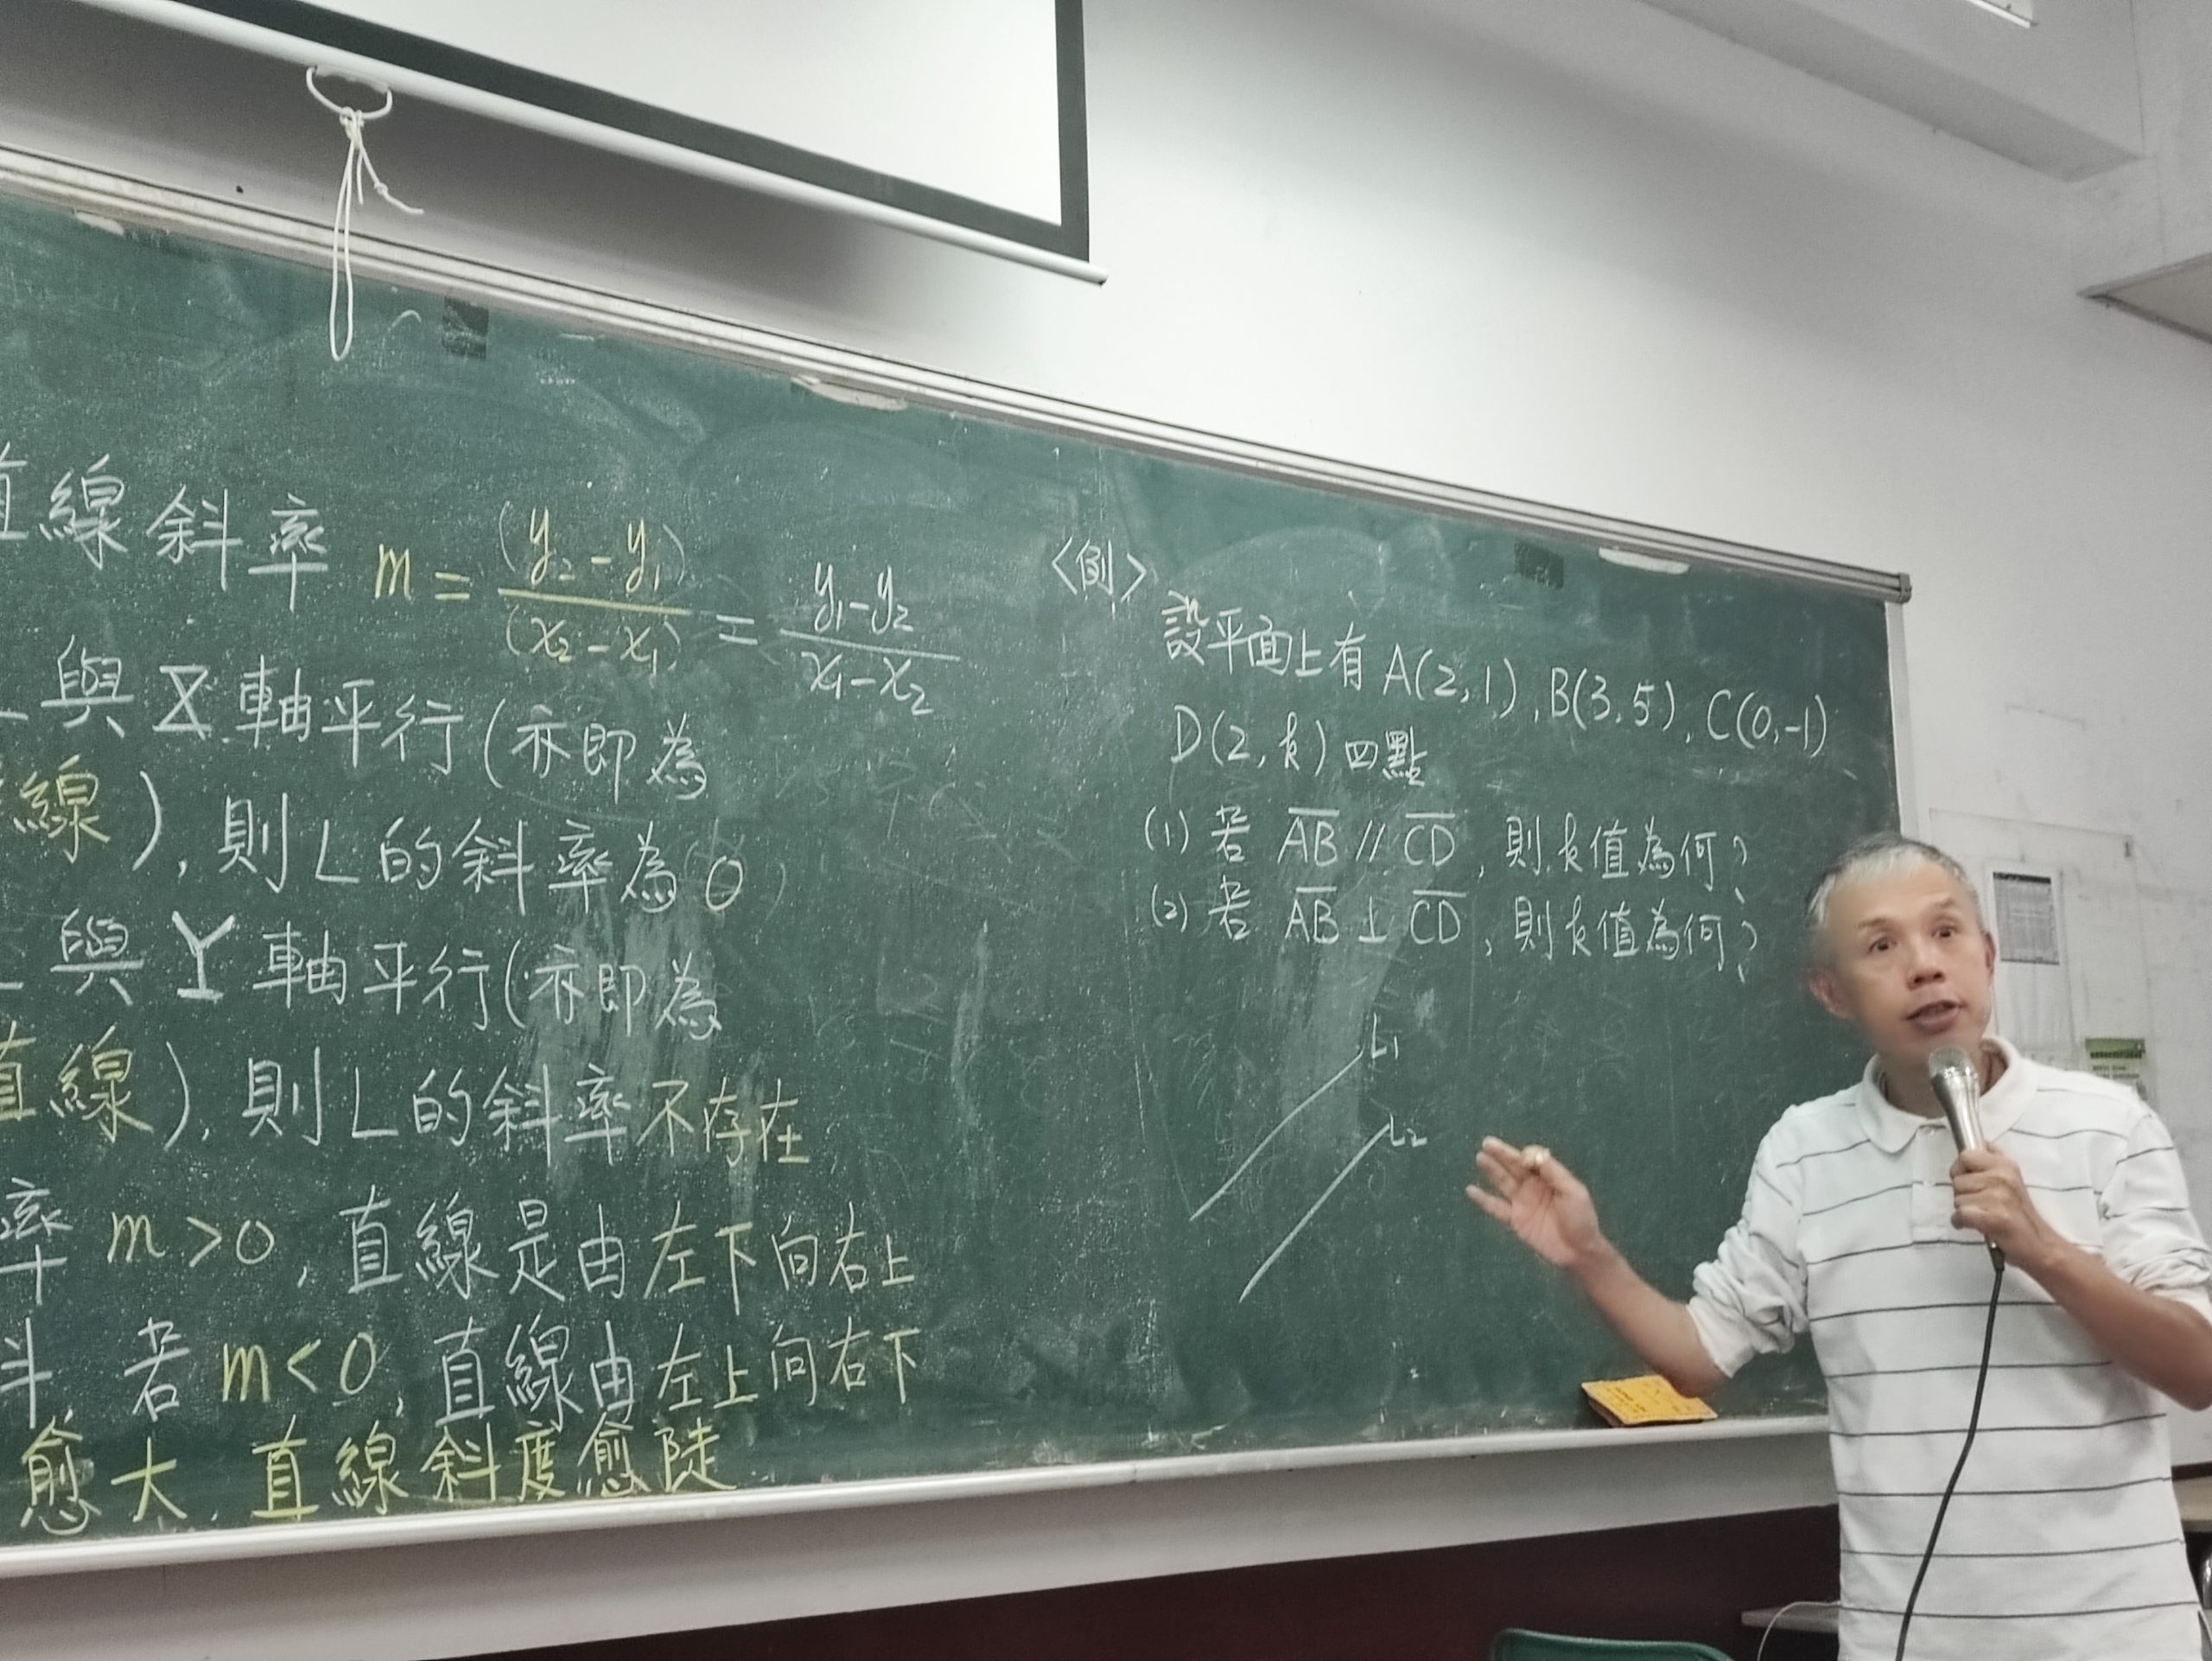 直線斜率 m = (y₂-y₁)/(x₂-x₁) = y₁-y₂/x₁-x₂
與X軸平行(亦即為
線),則L的斜率為0
與Y軸平行(亦即為
直線),則L的斜率不存在
率 m>0,直線是由左下向右上
斜,若 m<0,直線由左上向右下
愈大,直線斜度愈陡
<例>
設平面上有 A(2,1),B(3,5),C(0,-1)
D(2,k)四點
(1) 若 A̅B̅ // C̅D̅,則k值為何?
(2) 若 A̅B̅ ⊥ C̅D̅,則k值為何?
L₁
L₂